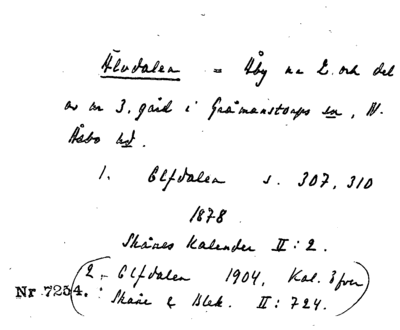 Älvdalen = Åby nr 2 och del
av nr 3, gård i Gråmanstorps sn, N.
Åsbo hd.
1. Elfdalen s. 307, 310
1878
Skånes Kalender II: 2.
(2. Elfdalen 1904, Kal. öfver
Nr 7254. Skåne & Blek. II: 724.)